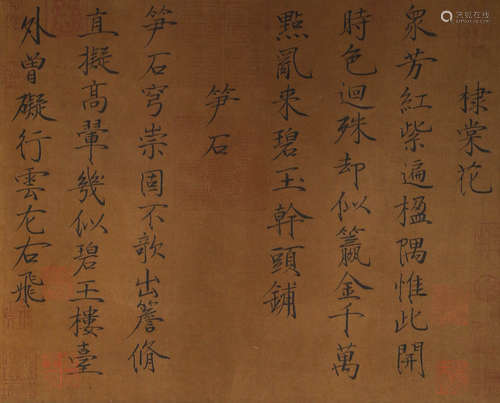 棣棠花
衆芳紅紫遍楹隅惟此開
時色迴殊却似籯金千萬
點亂来碧玉幹頭鋪
笋石
笋石穹崇固不歌出簷脩
直擬高翬幾似碧玉樓臺
外曾礙行雲左右飛